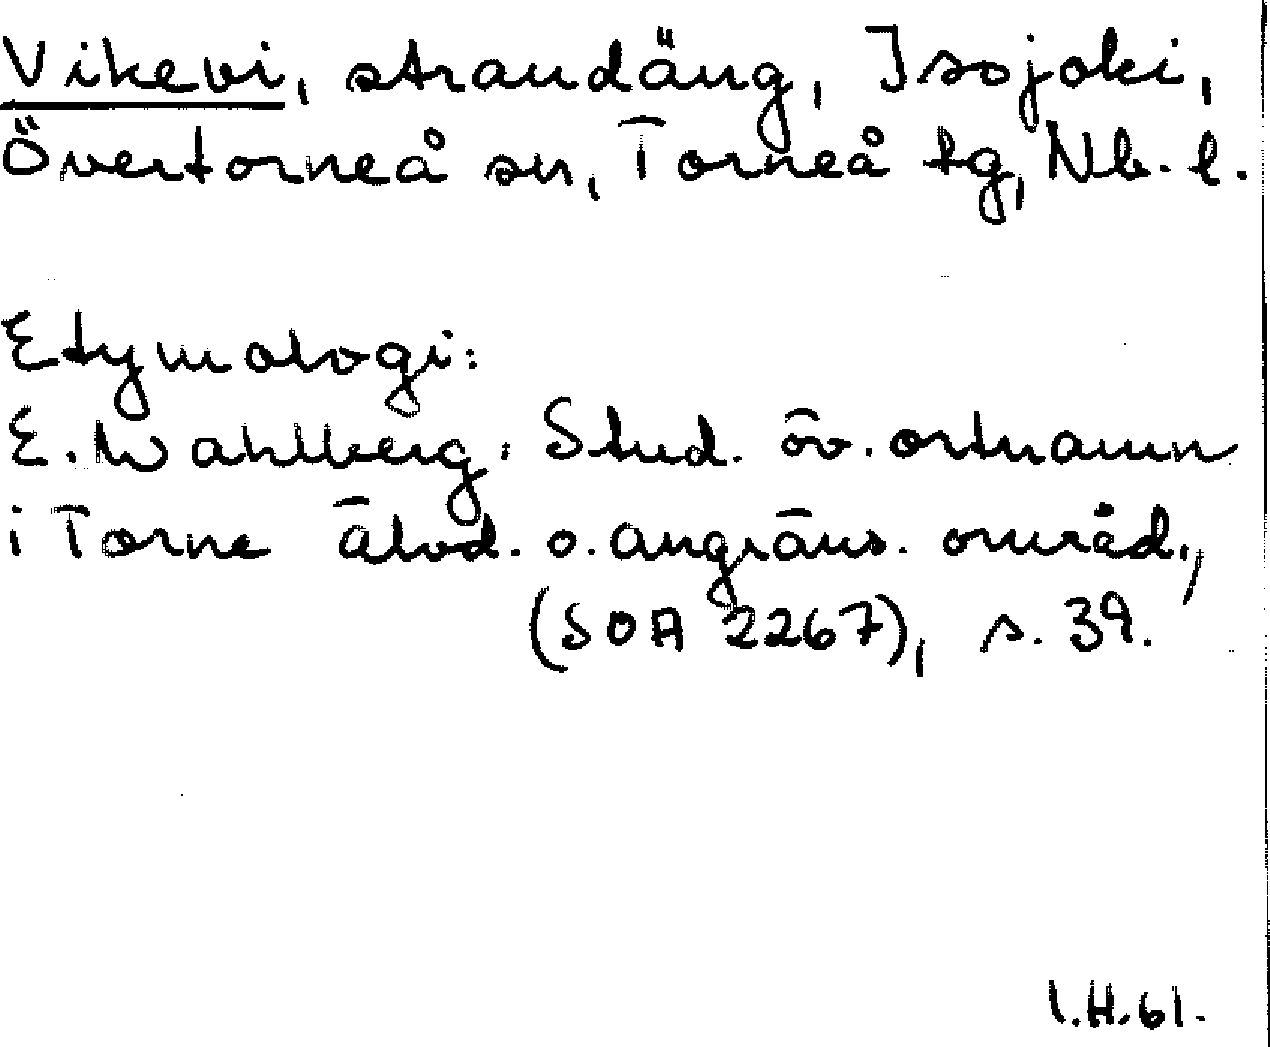 Vikevi, strandäng, Isojoki,
Övertorneå sn, Torneå tg, Nb. l.
Etymologi:
E. Wahlberg: Stud. öv. ortnamn
i Torne älvd. o. angräns. områd.,
(SOA 2267), s. 39.
I.H.61.